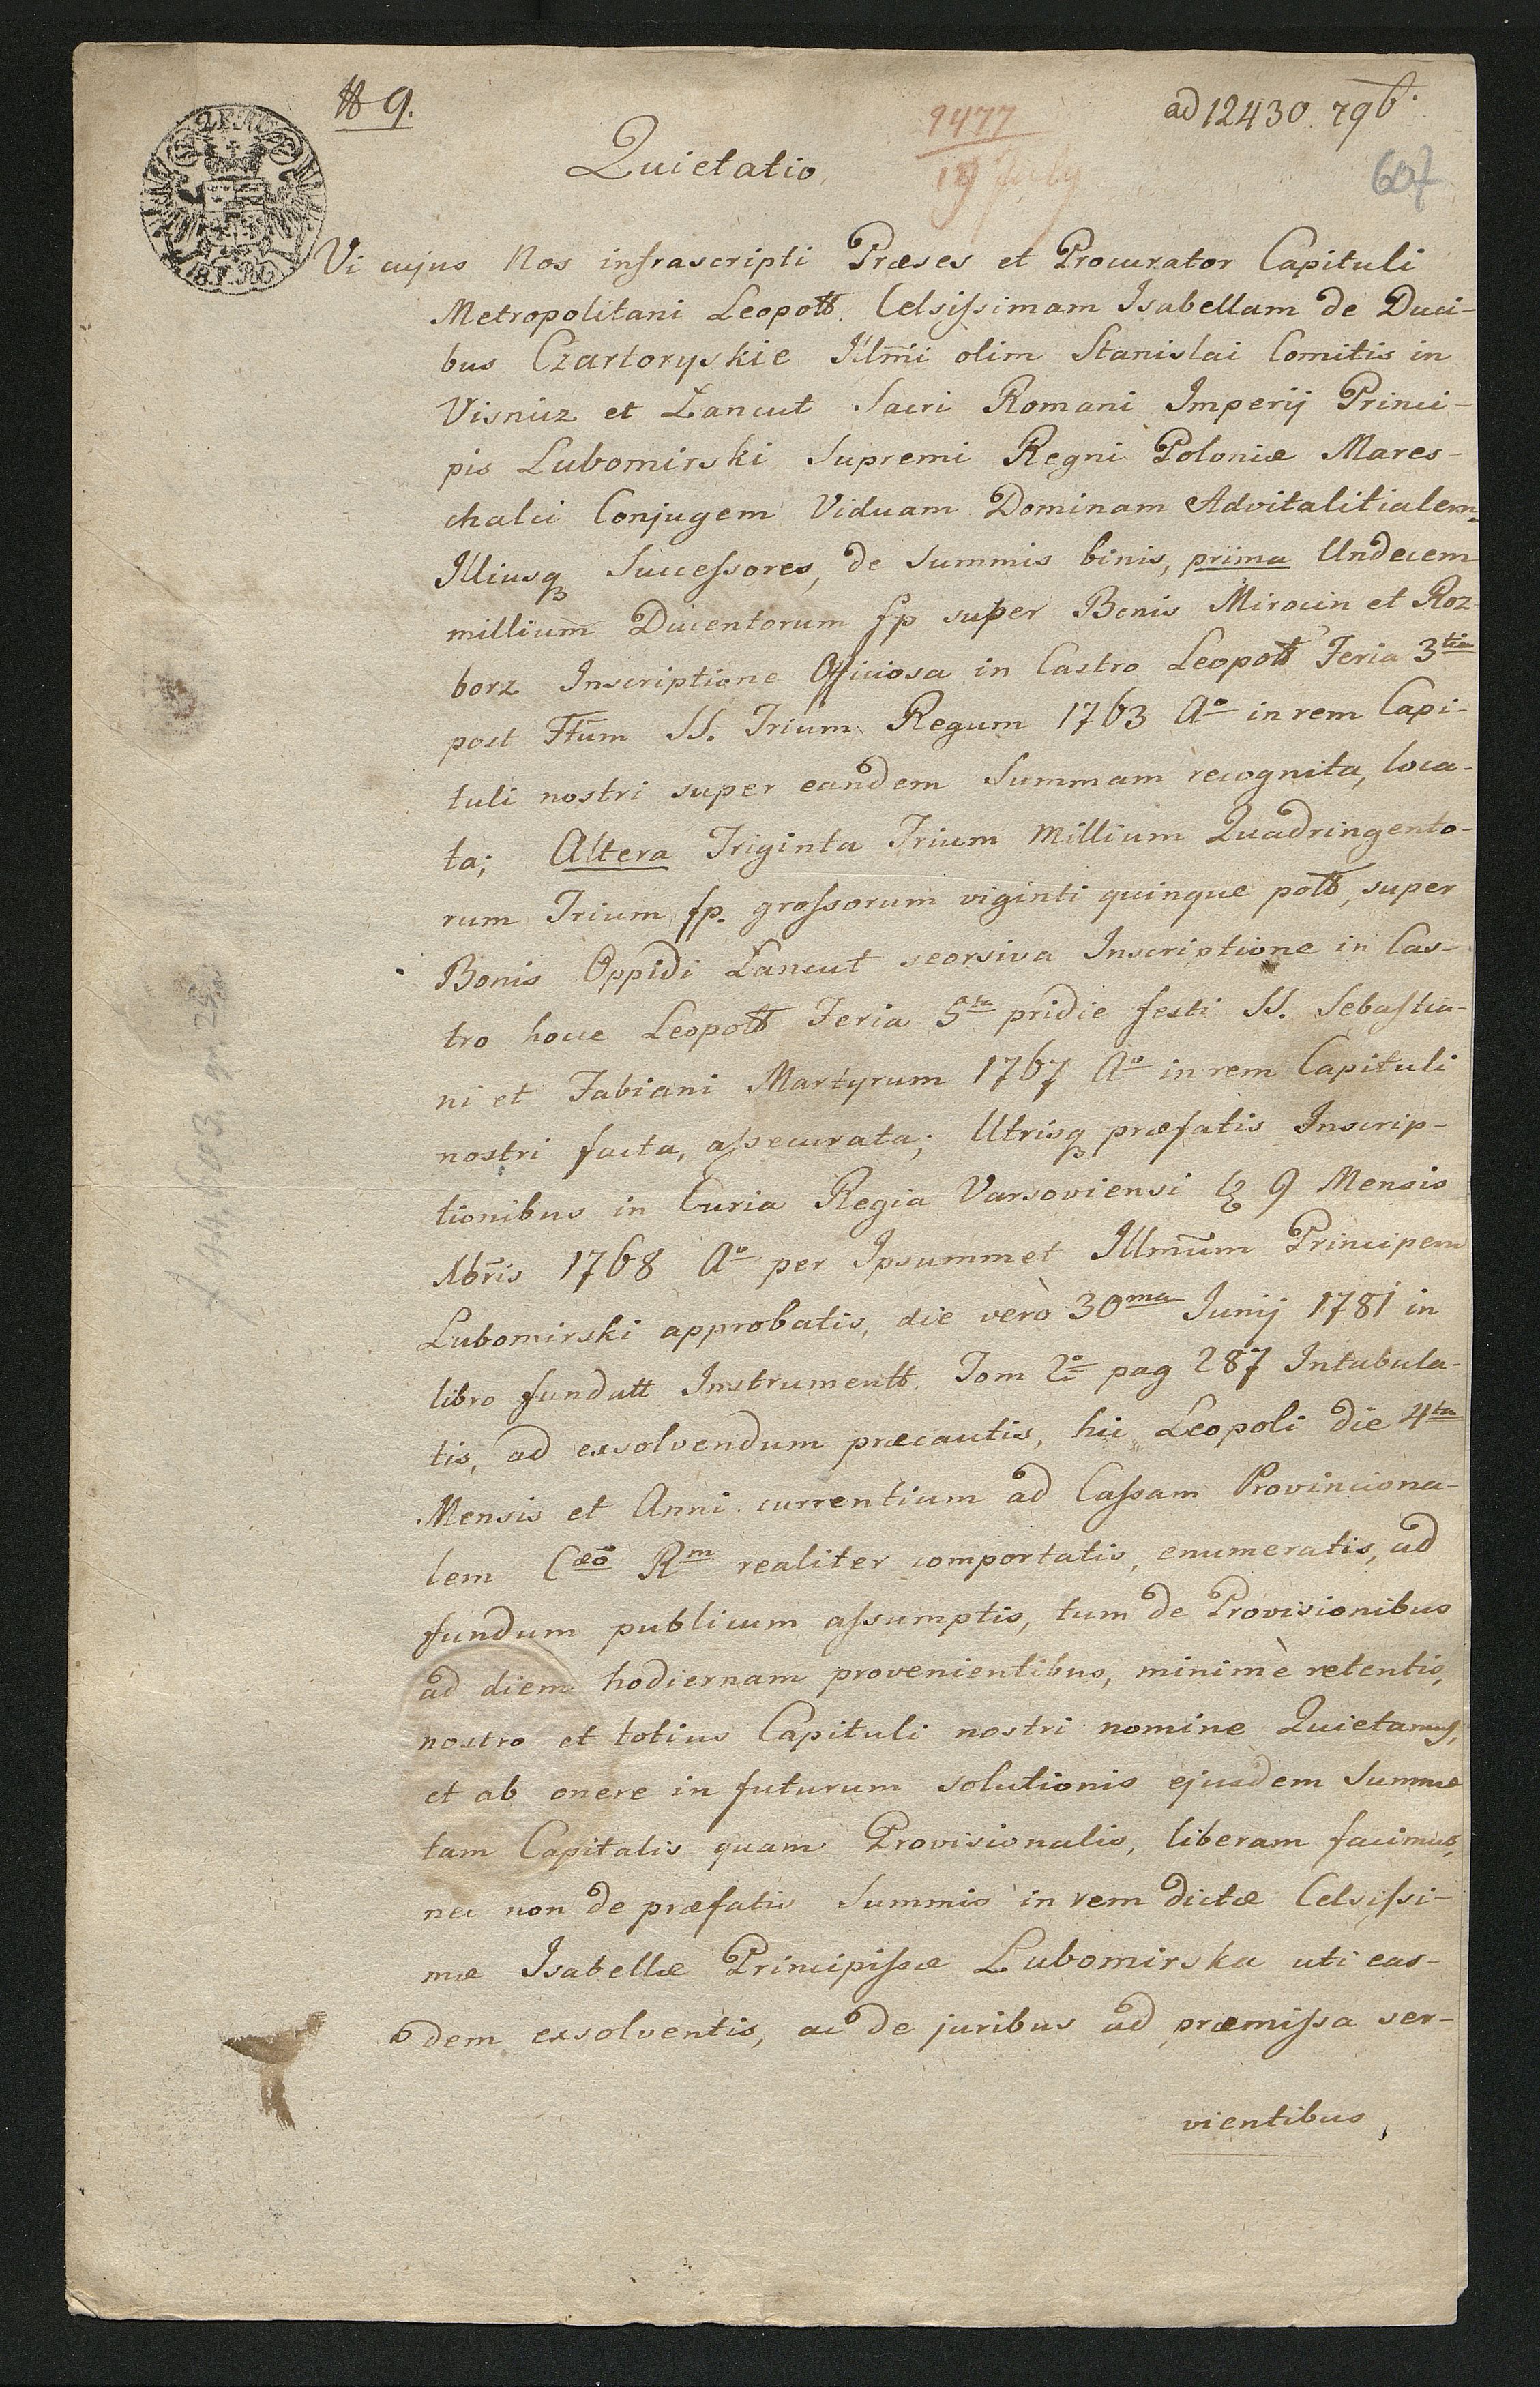 # 9.
ad 12430 796.
9477
19 July
607
Quietatio
Vi cujus Nos infrascripti Præses et Procurator Capituli
Metropolitani Leopott. Celsissimam Isabellam de Duci-
bus Czartoryskie Illmi olim Stanislai Comitis in
Visnicz et Lancut Sacri Romani Imperij Princi-
pis Lubomirski Supremi Regni Poloniæ Mares-
chalci Conjugem Viduam Dominam Advitalitialem
Illiusq Successores, de Summis binis, prima Undecem
millium Ducentorum fp super Bonis Mirocin et Roz-
borz Inscriptione Officiosa in Castro Leopott Feria 3tia
post Ftum SS. Trium Regum 1763 Ao in rem Capi-
tuli nostri super eandem Summam recognita, loca-
ta; Altera Triginta Trium Millium Quadringento-
rum Trium fp. grossorum viginti quinque pott, super
Bonis Oppidi Lancut seorsiva Inscriptione in Cas-
tro hocce Leopott Feria 5ta pridie festi SS. Sebastia-
ni et Fabiani Martyrum 1767 Ao in rem Capituli
nostri facta, assecurata; Utrisq præfatis Inscrip-
tionibus in Curia Regia Varsoviensi 9 Mensis
Xbris 1768 Ao per Ipsummet Illmum Principem
Lubomirski approbatis, die verò 30ma Junij 1781 in
libro fundatt Instrumentt. Tom 2o pag 287 Intabula-
tis, ad exsolvendum præcautis, hic Leopoli die 4ta
Mensis et Anni currentium ad Cassam Provinciona-
lem Cæo Rm realiter comportatis, enumeratis, ad
fundum publicum assumptis, tum de Provisionibus
ad diem hodiernam provenientibus, minimè retentis,
nostro et totius Capituli nostri nomine Quietamus,
et ab onere in futurum solutionis ejusdem Summæ
tam Capitalis quam Provisionalis, liberam facimus,
nec non de præfatis Summis in rem dictæ Celsissi-
mæ Isabellæ Principissæ Lubomirska uti eas-
dem exsolventis, ac de juribus ad præmissa ser-
vientibus,